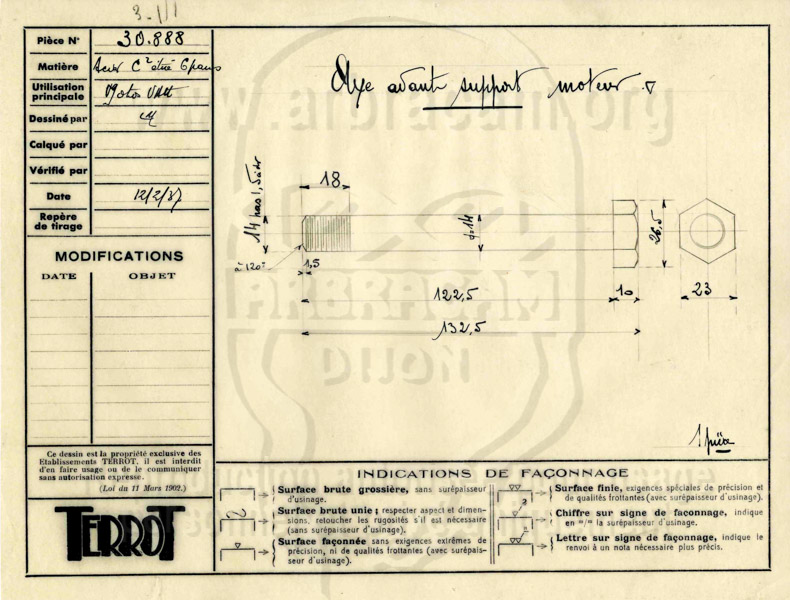 3.1/1
Pièce N° 30.888
Matière Acier C² étiré 6 pans
Utilisation principale Motos
Dessiné par
Calqué par
Vérifié par
Date 12/2/37
Repère de tirage
MODIFICATIONS
DATE OBJET
Axe avant support moteur ▽
18
14 pas 1,5
à 120°
1,5
ϕ=14
26,5
122,5
10
23
132,5
1 pièce
Ce dessin est la propriété exclusive des
Etablissements TERROT, il est interdit
d'en faire usage ou de le communiquer
sans autorisation expresse.
(Loi du 11 Mars 1902.)
TERROT
INDICATIONS DE FAÇONNAGE
Surface brute grossière, sans surépaisseur
d'usinage.
Surface brute unie; respecter aspect et dimen-
sions, retoucher les rugosités s'il est nécessaire
(sans surépaisseur d'usinage).
Surface façonnée sans exigences extrêmes de
précision, ni de qualités frottantes (avec surépais-
seur d'usinage).
Surface finie, exigences spéciales de précision et
de qualités frottantes (avec surépaisseur d'usinage).
Chiffre sur signe de façonnage, indique
en m/m la surépaisseur d'usinage.
Lettre sur signe de façonnage, indique le
renvoi à un nota nécessaire plus précis.
www.arbracam.org
ARBRACAM
DIJON